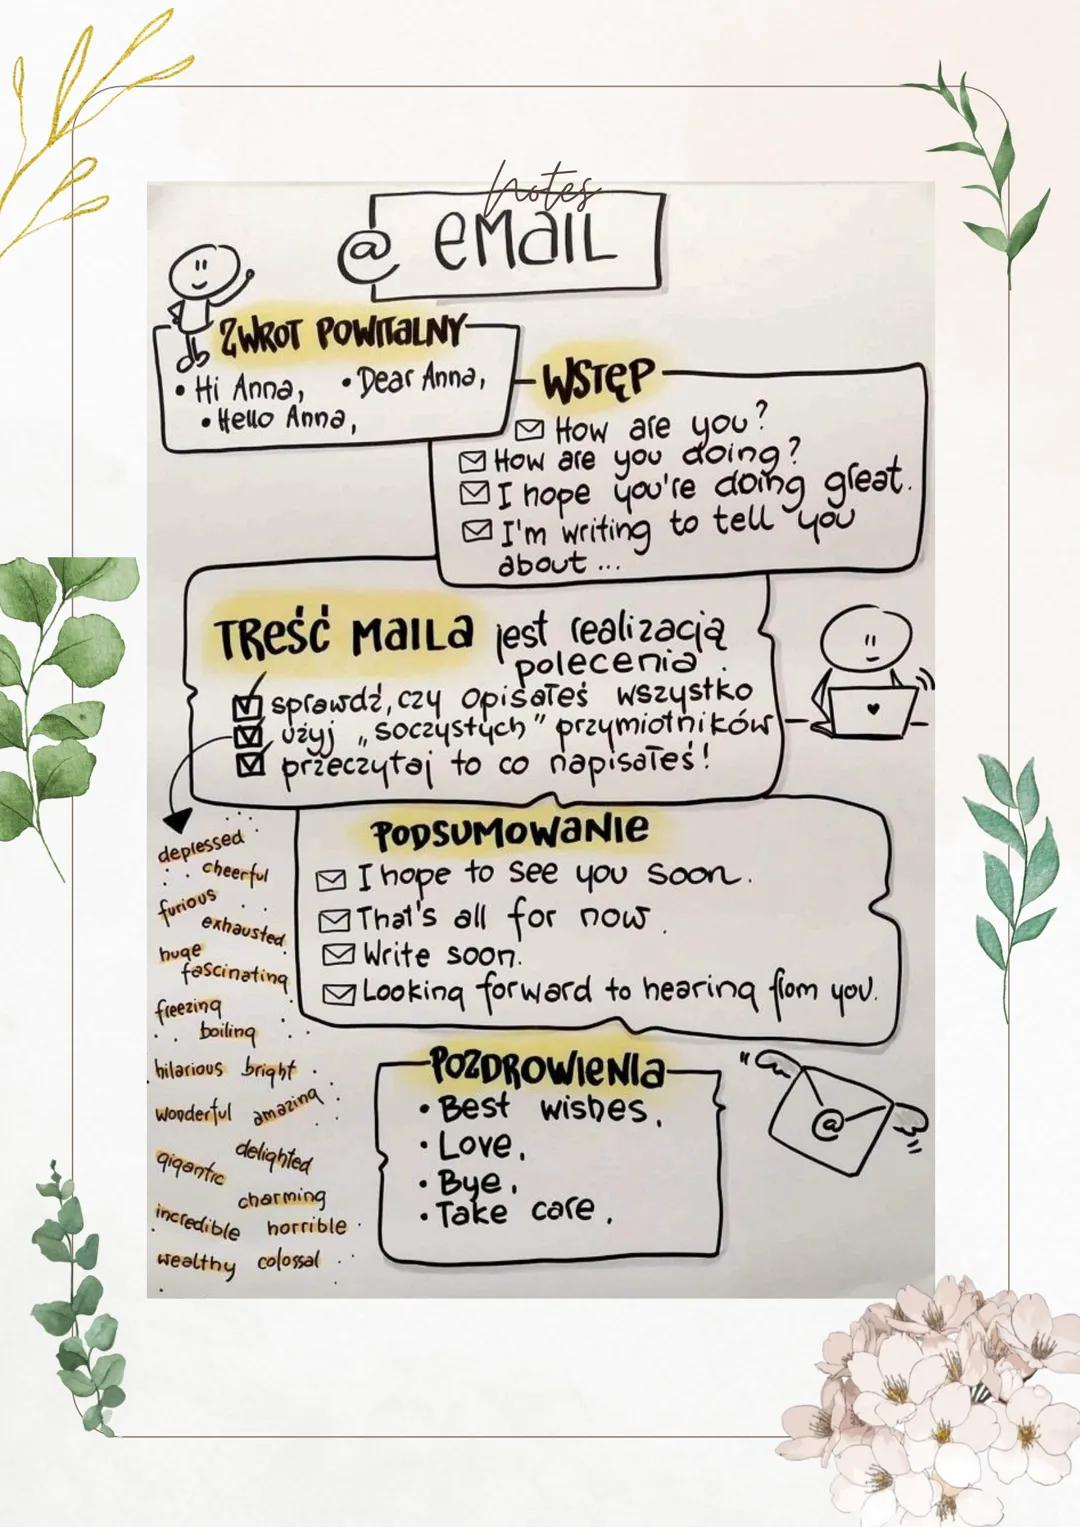 notes
@ EMAIL
ZWROT POWITALNY
• Hi Anna, • Dear Anna,
• Hello Anna,
WSTĘP
How are you?
How are you doing?
I hope you're doing great.
I'm writing to tell you
about ...
TREŚĆ MAILA jest realizacją
polecenia.
sprawdź, czy opisałeś wszystko
użyj „soczystych" przymiotników
przeczytaj to co napisałeś!
depressed
cheerful
furious
exhausted
huge
fascinating
freezing
boiling
hilarious bright
wonderful amazing
gigantic delighted
charming
incredible horrible
wealthy colossal
PODSUMOWANIE
I hope to see you soon.
That's all for now.
Write soon.
Looking forward to hearing from you.
POZDROWIENIA
• Best wishes,
• Love,
• Bye,
• Take care,
@